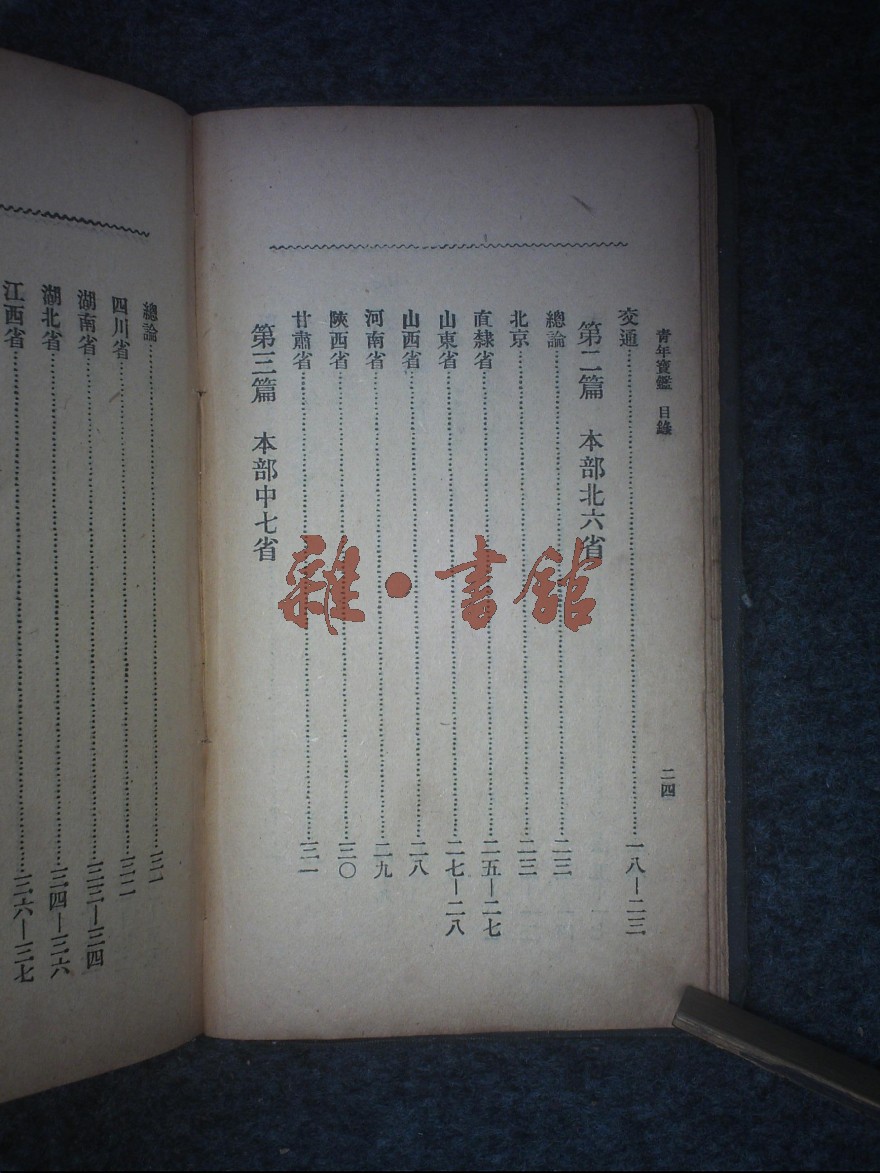 青年寶鑑 目錄
二四
交通……一八—二三
第二篇 本部北六省
總論……二三
北京……二三
直隸省……二五—二七
山東省……二七—二八
山西省……二八
河南省……二九
陝西省……三〇
甘肅省……三一
第三篇 本部中七省
總論……三二
四川省……三二
湖南省……三三—三四
湖北省……三四—三六
江西省……三六—三七
雜·書館